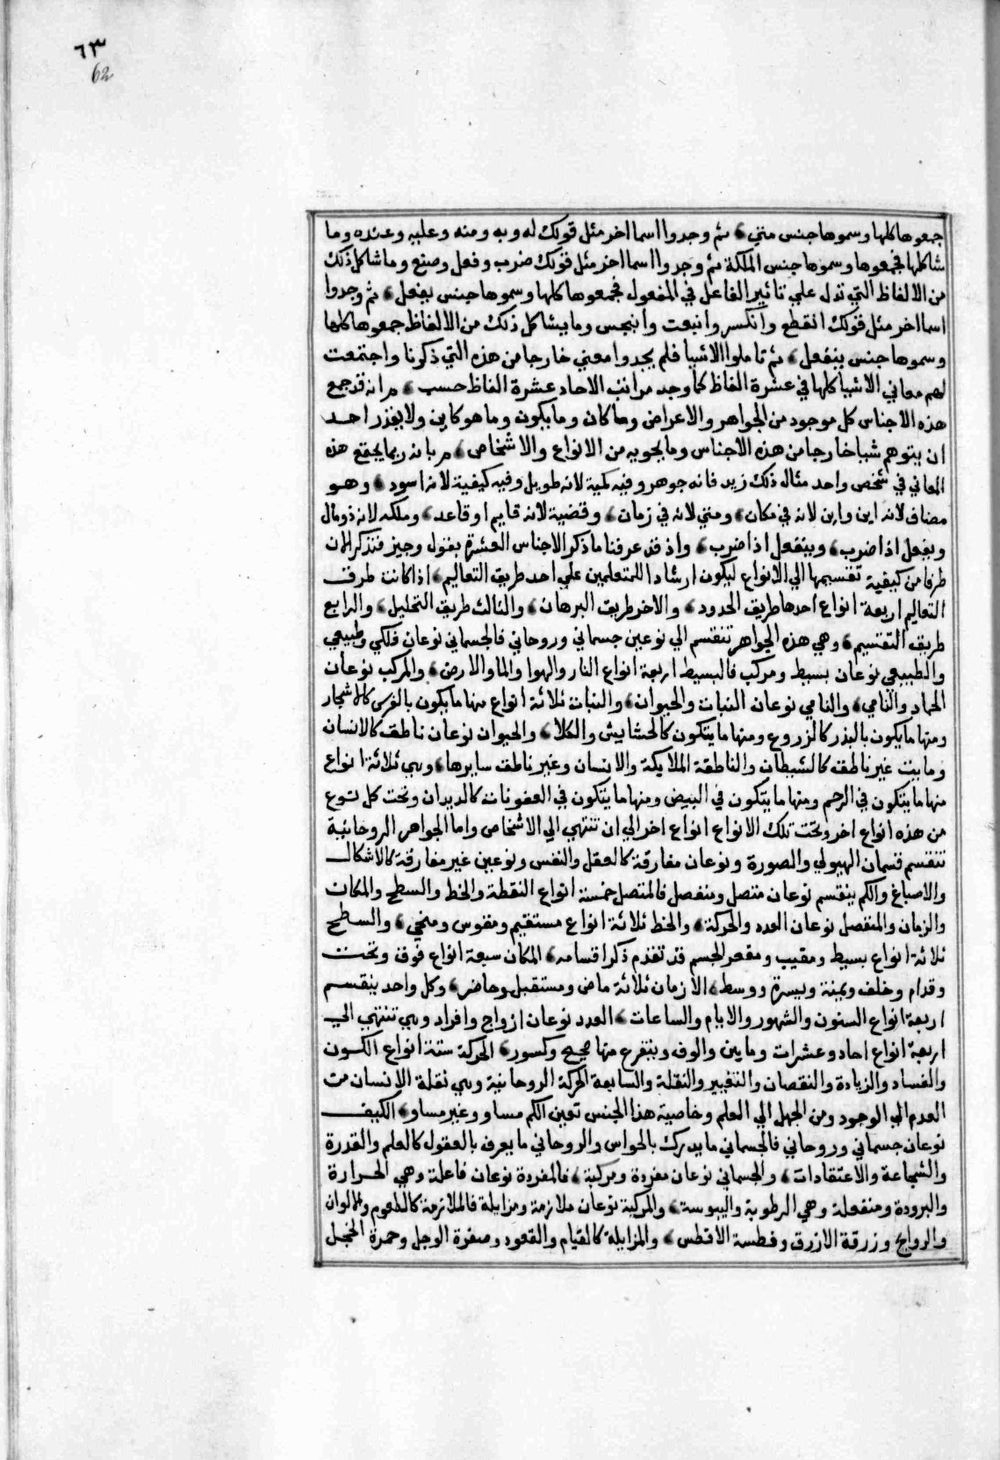 ٦٣
62
جمعوها كلها وسموها جنس متي، ثم وجدوا اسما اخر مثل قولك له وبه ومنه وعليه وعنده وما
شاكلها فجمعوها وسموها جنس الملكة ثم وجدوا اسما اخر مثل قولك ضرب وفعل وصنع وما شاكل ذلك
من الالفاظ التي تدل علي تاثير الفاعل في المفعول فجمعوها كلها وسموها جنس يفعل، ثم وجدوا
اسما اخر مثل قولك انقطع وانكسر وانبعت وانبجس وما يشاكل ذلك من الالفاظ جمعوها كلها
وسموها جنس ينفعل، ثم تاملوا الاشيا فلم يجدوا معني خارجا من هذه التي ذكرنا واجتمعت
لهم معاني الاشيا كلها في عشرة الفاظ كما وجد مراتب الاحاد عشرة الفاظ حسب، مر انه قد جمع
هذه الاجناس كل موجود من الجواهر والاعراض وما كان وما يكون وما هو كاين ولا يقدر احد
ان يتوهم شيا خارجا من هذه الاجناس وما يحويه من الانواع والاشخاص، مر بانه ربما يجتمع هذه
المعاني في شخص واحد مثاله ذلك زيد فانه جوهر وفيه كمية لانه طويل وفيه كيفية لانه اسود، وهو
مضاف لانه ابن واين لانه في مكان، ومتي لانه في زمان، وقضية لانه قايم او قاعد، وملكه لانه ذو مال
ويفعل اذا ضرب، وينفعل اذا ضرب، واذ قد عرفنا ما ذكر الاجناس العشرة بقول وجيز فنذكر الان
طرفا من كيفية تقسيمها الي الانواع ليكون ارشادا للمتعلمين علي احد طريق التعاليم، اذا كانت طرق
التعاليم اربعة انواع احدها طريق الحدود، والاخر طريق البرهان، والثالث طريق التحليل، والرابع
طريق التقسيم، وهي هذه الجواهر تنقسم الي نوعين جسماني وروحاني فالجسماني نوعان فلكي وطبيعي
والطبيعي نوعان بسيط ومركب فالبسيط اربعة انواع النار والهوا والما والارض، والمركب نوعان
الجماد والنامي، والنامي نوعان النبات والحيوان، والنبات ثلاثة انواع منها ما يكون بالغرس كالاشجار
ومنها ما يكون بالبذر كالزروع ومنها ما يتكون كالحشايش والكلا، والحيوان نوعان ناطق كالانسان
وما بت غير ناطق كالشيطان والناطقة الملايكة والانسان وغير ناطق سايرها، وهي ثلاثة انواع
منها ما يتكون في الرحم ومنها ما يتكون في البيض ومنها ما يتكون في العفونات كالديدان وتحت كل نوع
من هذه انواع اخر وتحت تلك الانواع انواع اخر الي ان تنتهي الي الاشخاص واما الجواهر الروحانية
تنقسم قسمان الهيولي والصورة ونوعان مفارقة كالعقل والنفس ونوعين غير مفارقة كالاشكال
والاصباغ والكم ينقسم نوعان متصل ومنفصل فالمتصل خمسة انواع النقطة والخط والسطح والمكان
والزمان والمنفصل نوعان العدد والحركة، والخط ثلاثة انواع مستقيم ومقوس ومنحي، والسطح
ثلاثة انواع بسيط ومقبب ومقعر للجسم قد تقدم ذكر اقسامه، المكان سبعة انواع فوق وتحت
وقدام وخلف ويمنة ويسرة ووسط، الازمان ثلاثة ماض ومستقبل وحاضر، وكل واحد ينقسم
اربعة انواع السنون والشهور والايام والساعات، العدد نوعان ازواج وافراد وهي تنتهي الي
اربعة انواع احاد وعشرات ومايين والوف ويتفرع منها صحيح وكسور، الحركة ستة انواع الكون
والفساد والزيادة والنقصان والتغيير والنقلة والسابعة الحركة الروحانية وهي نقلة الانسان من
العدم الي الوجود ومن الجهل الي العلم وخاصية هذا الجنس تعين الكم مساو وغير مساو، الكيف
نوعان جسماني وروحاني فالجسماني ما يدرك بالحواس والروحاني ما يعرف بالعقول كالعلم والقدرة
والشجاعة والاعتقادات، والجسماني نوعان مفردة ومركبة، فالمفردة نوعان فاعلة وهي الحرارة
والبرودة ومنفعلة وهي الرطوبة واليبوسة، والمركبة نوعان ملازمة ومزايلة فالملازمة كالطعوم والالوان
والروايح وزرقة الازرق وفطسة الافطس، والمزايلة كالقيام والقعود وصفرة الوجل وحمرة الخجل